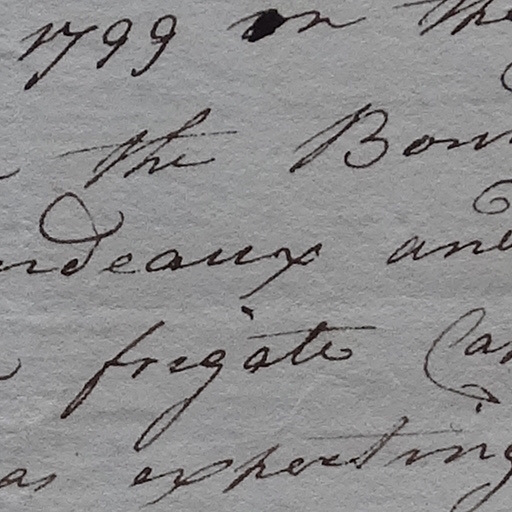 1799 on the
the Bour
rdeaux and
frigate Ca
as expecting